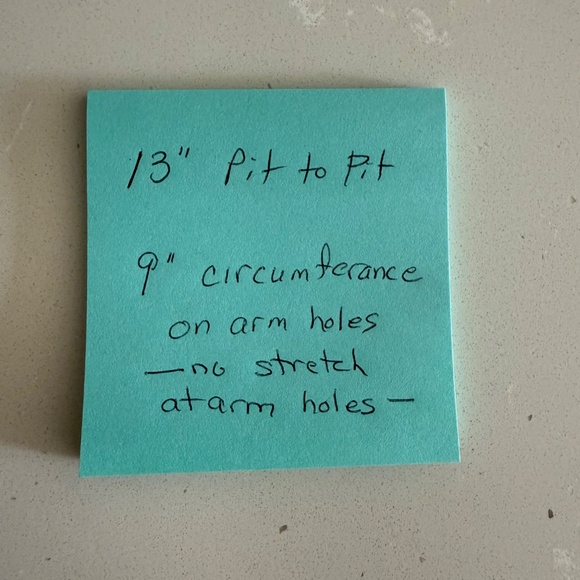 13" Pit to Pit
9" circumferance
on arm holes
—no stretch
at arm holes—